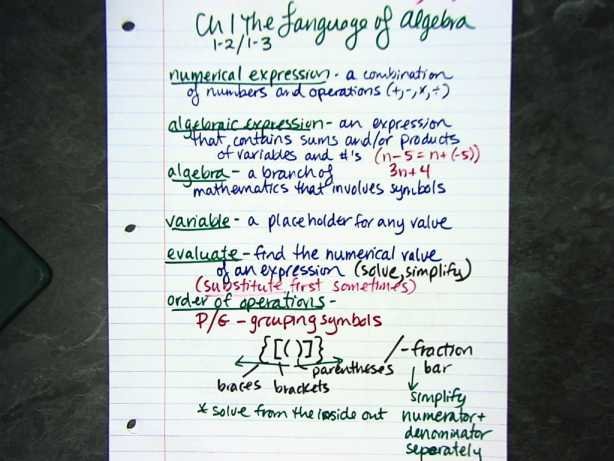 Ch 1 The Language of Algebra
1-2/1-3
numerical expression - a combination
of numbers and operations (+,-,x,÷)
algebraic expression - an expression
that contains sums and/or products
of variables and #'s (n-5 = n+(-5))
3n+4
algebra - a branch of
mathematics that involves symbols
variable - a placeholder for any value
evaluate - find the numerical value
of an expression (solve, simplify)
(substitute first sometimes)
order of operations -
P/G - grouping symbols
{[()]}
braces brackets parentheses
/ - fraction
bar
simplify
numerator +
denominator
seperately
* solve from the inside out